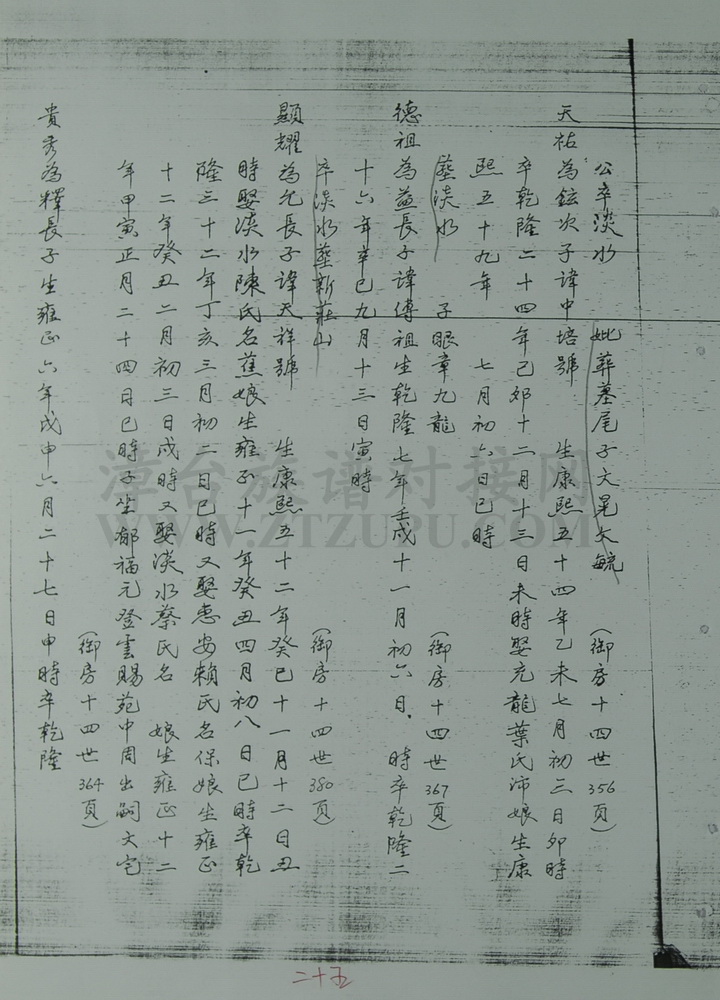 公卒淡水　妣葬墓尾子文晃文毓　(御房十四世356頁)
天祐為鉉次子諱中培號　生康熙五十四年乙未七月初三日卯時
卒乾隆二十四年己卯十二月十三日未時娶充龍葉氏沛娘生康
熙五十九年　七月初六日巳時
葬淡水　子眼章九龍　(御房十四世367頁)
德祖為益長子諱傳祖生乾隆七年壬戌十一月初六日、時卒乾隆二
十六年辛巳九月十三日寅時
卒淡水葬新莊山　(御房十四世380頁)
顯耀為允長子諱天祥號　生康熙五十二年癸巳十一月十二日丑
時娶淡水陳氏名蕉娘生雍正十一年癸丑四月初八日巳時卒乾
隆三十二年丁亥三月初二日巳時又娶惠安賴氏名保娘生雍正
十二年癸丑二月初三日戌時又娶淡水蔡氏名　娘生雍正十二
年甲寅正月二十四日巳時子坐郁福元登雲賜苑中周出嗣文宅
(御房十四世364頁)
貴秀為釋長子生雍正六年戊申六月二十七日申時卒乾隆
二十五
漳台族谱对接网
WWW.ZTZUPU.COM